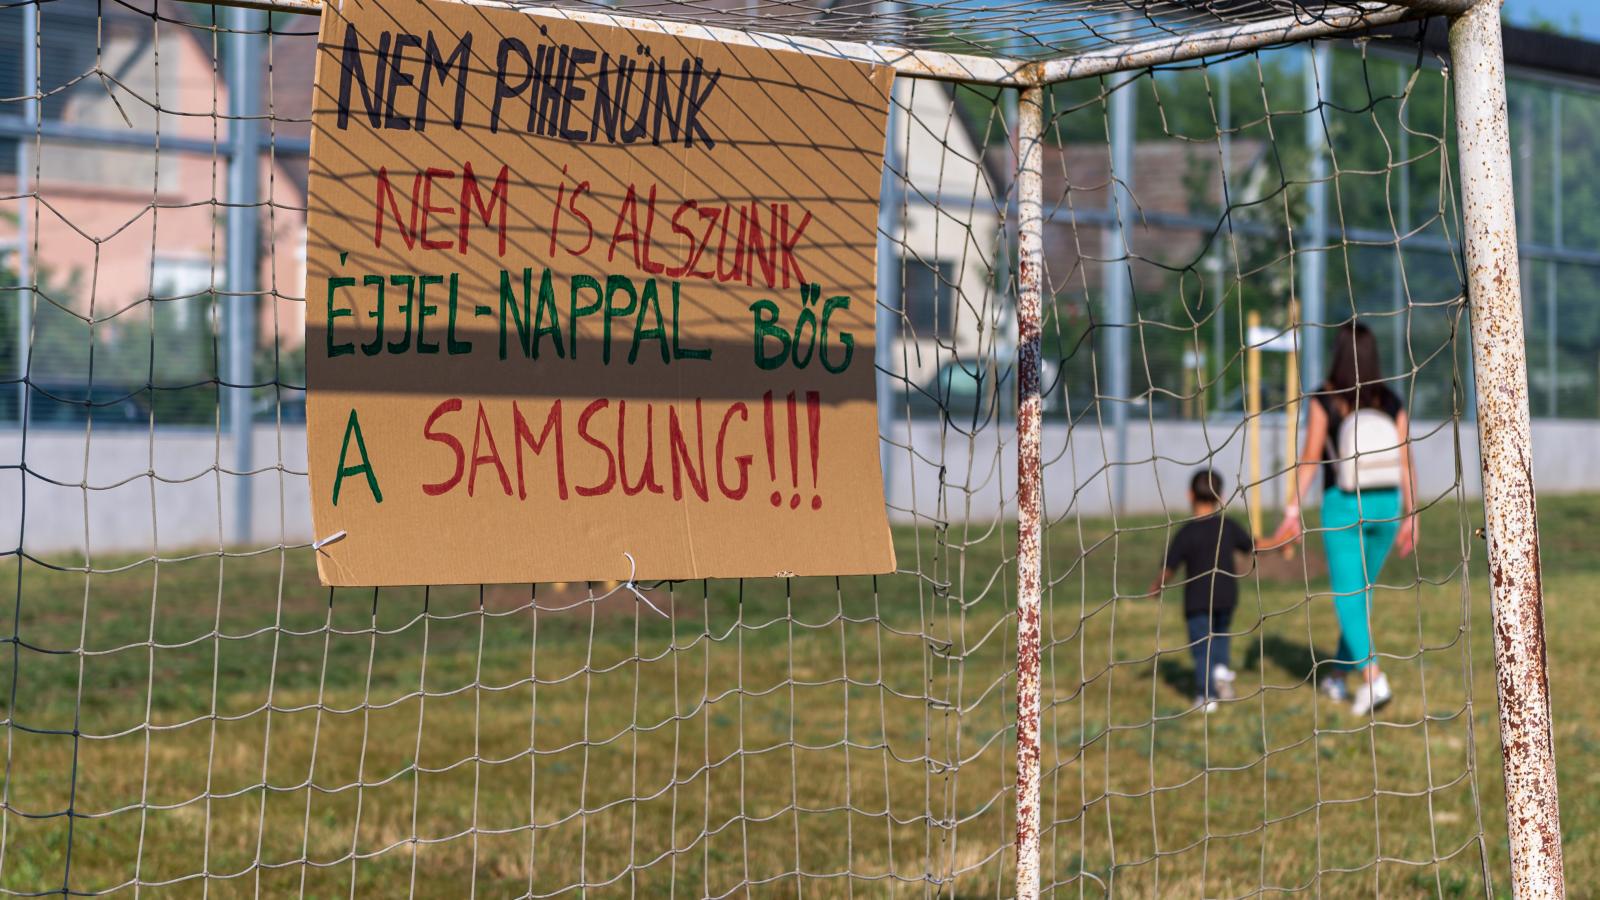 NEM PIHENÜNK
NEM IS ALSZUNK
ÉJJEL-NAPPAL BŐG
A SAMSUNG!!!